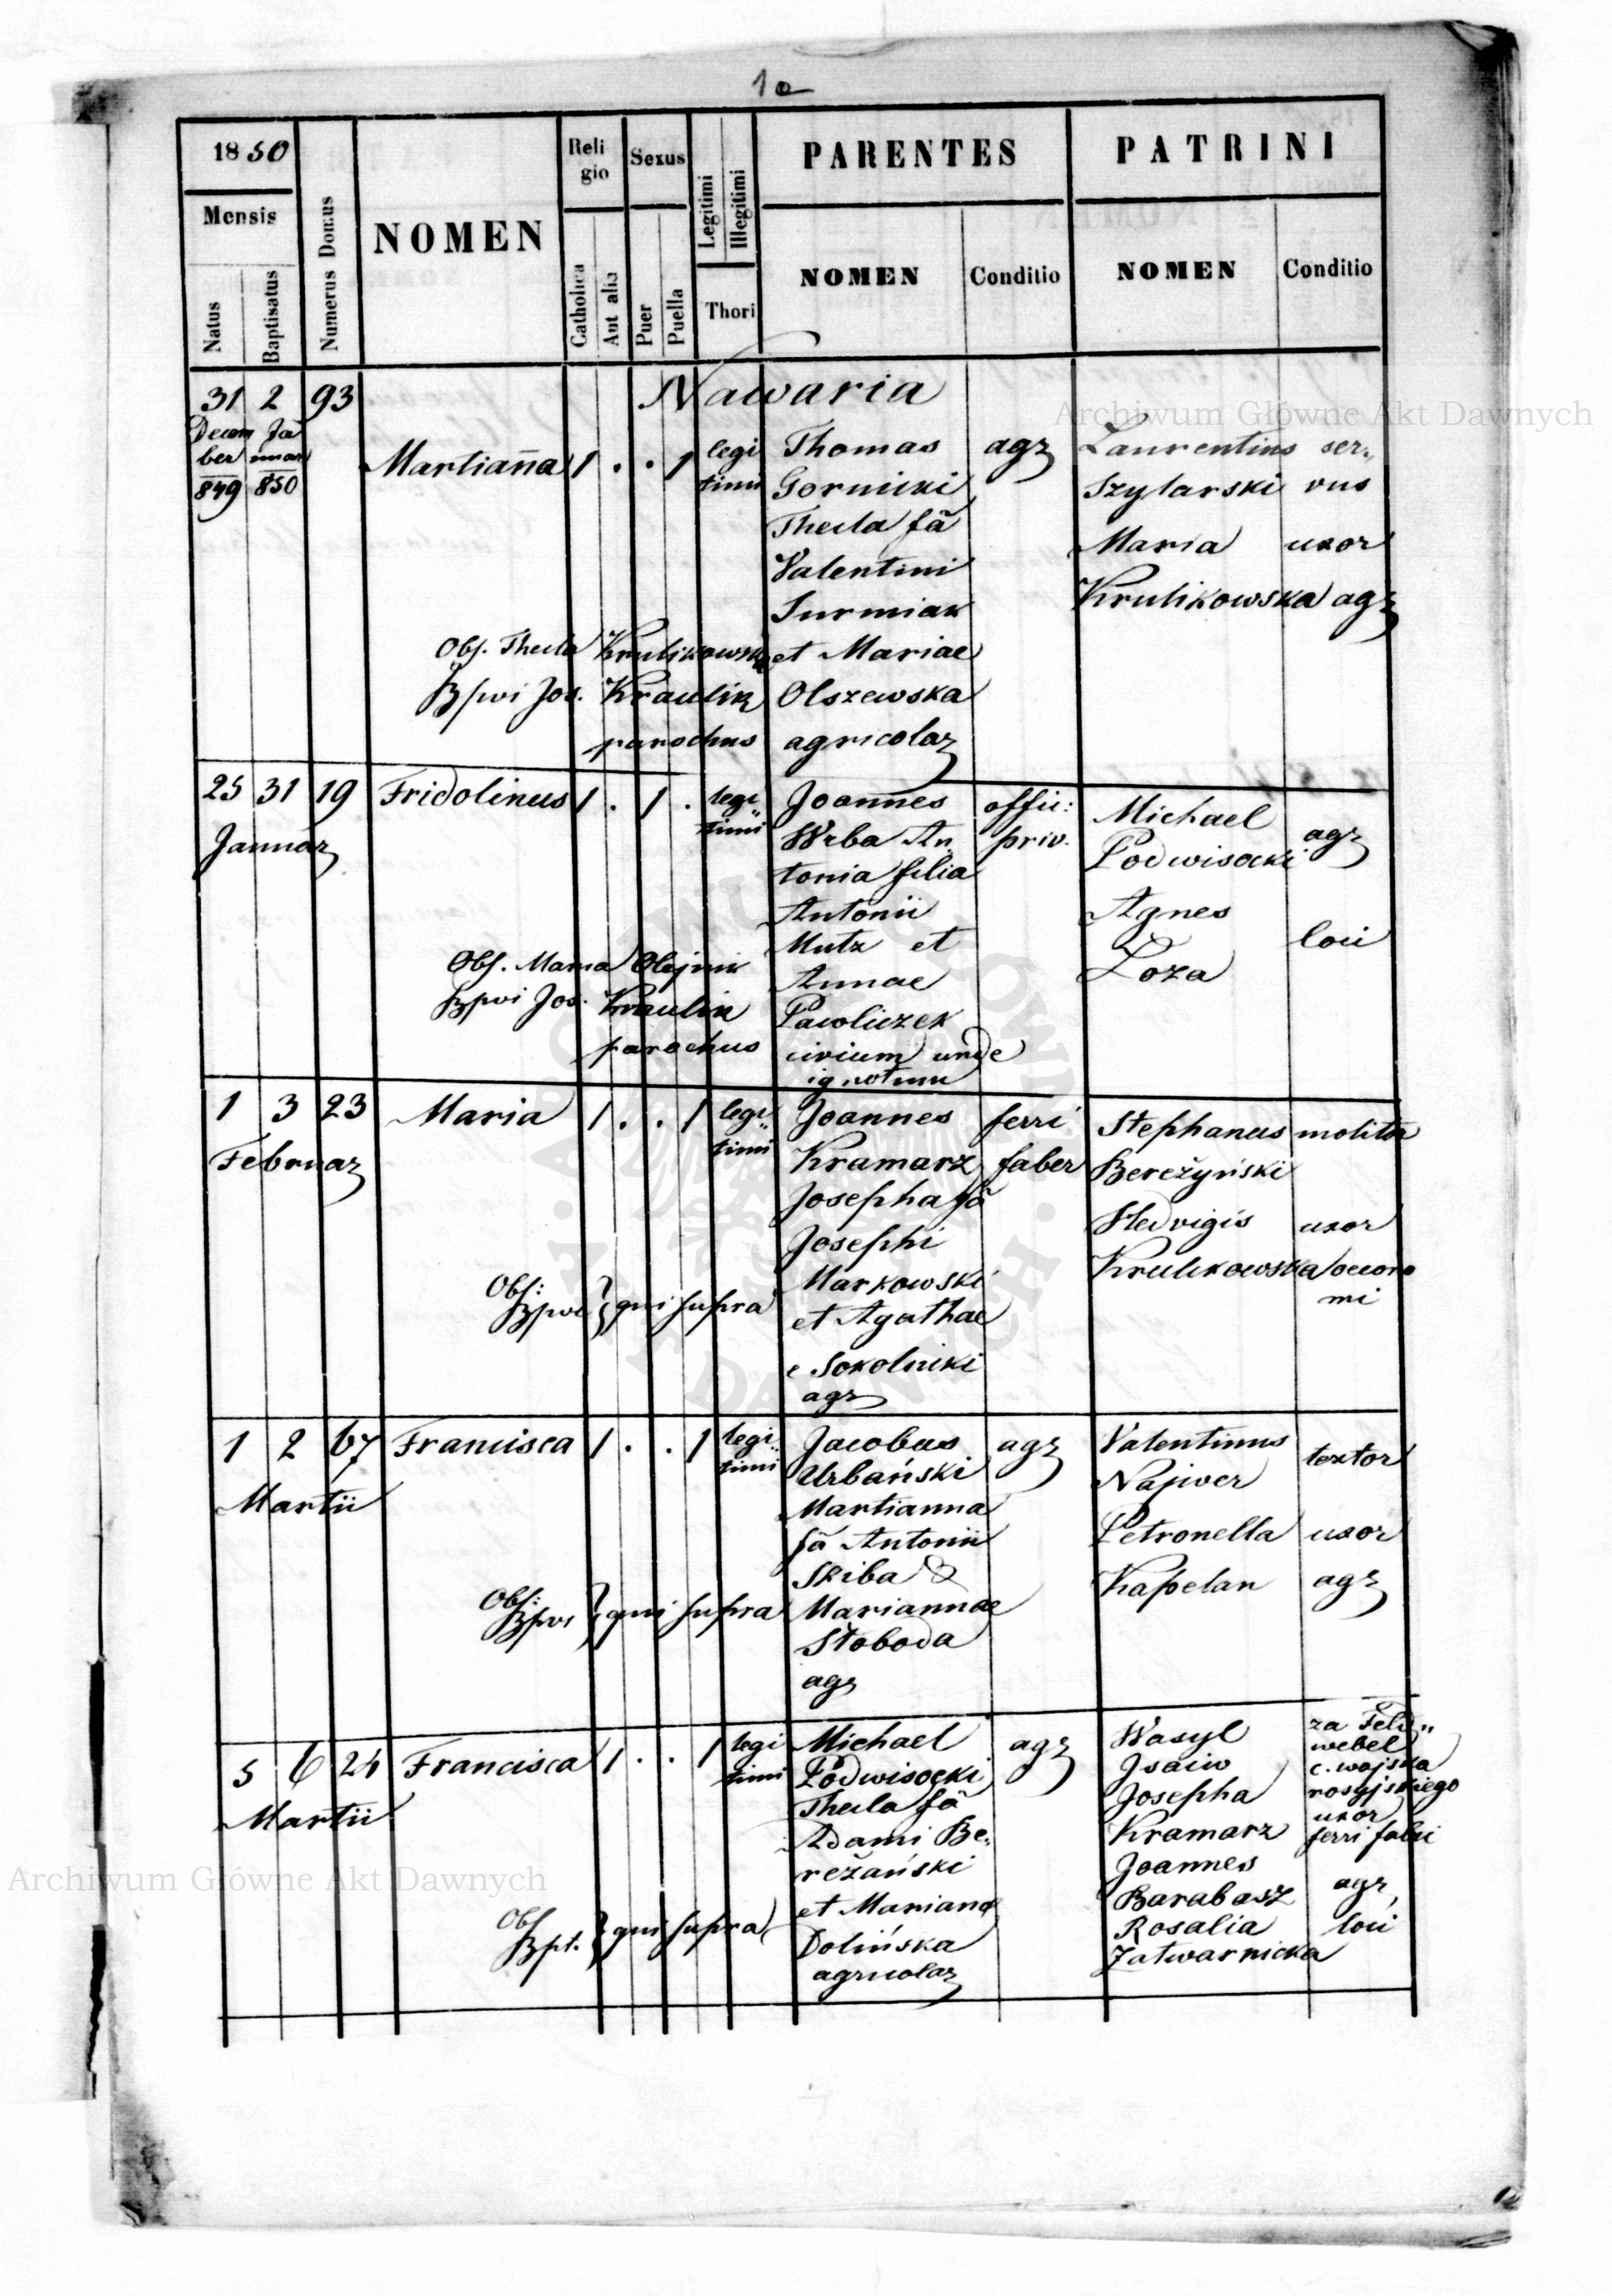 10
1850
Mensis
Natus
Baptisatus
Numerus Domus
NOMEN
Reli
gio
Catholica
Aut alia
Sexus
Puer
Puella
Legitimi
Illegitimi
Thori
PARENTES
NOMEN
Conditio
PATRINI
NOMEN
Conditio
Nawaria
31 2 93
Decem Ja
ber nuar
849 850
Martianna 1 . . 1 legi
timi
Thomas agr
Gornicki
Thecla fa
Valentini
Surmiak
et Mariae
Olszewska
agricolar
Laurentius ser„
Szylarski vus
Maria uxor
Krulikowska agr
Obs. Thecla Krulikowska
Bpvi Jos. Kraulik
parochus
25 31 19 Fridolinus 1 . 1 . legi
timi
Januar
Joannes offic:
Wrba An priv.
tonia filia
Antonii
Mutz et
Annae
Pawliczek
civium unde
ignotum
Michael
Podwisocki agr
Agnes
Łoza loci
Obs. Maria Olejnik
Bpvi Jos. Kraulik
parochus
1 3 23 Maria 1 . . 1 legi„
timi
Februar
Joannes ferri
Kramarz faber
Josepha fa
Josephi
Markowski
et Agathae
e Sokolniki
agr
Stephanus molitor
Bereżyński
Hedvigis uxor
Krulikowska oecono
mi
Obs:
Bpvi } qui supra
1 2 67 Francisca 1 . . 1 legi„
timi
Martii
Jacobus agr
Urbański
Martianna
fa Antonii
Skiba &
Mariannae
Słoboda
agr
Valentinus
Najwer textor
Petronella uxor
Kapelan agr
Obs:
Bpvi } qui supra
5 6 24 Francisca 1 . . 1 legi
timi
Martii
Michael agr
Podwisocki
Thecla fa
Adami Be„
reżański
et Marianae
Dolińska
agricolar
Wasyl za Feld„
Jsaiw webel
c. wojska
Josepha rosyjskiego
uxor
Kramarz ferri fabri
Joannes
Barabasz agr,
Rosalia loci
Zatwarnicka
Obs
Bpt. } qui supra
Archiwum Główne Akt Dawnych
Archiwum Główne Akt Dawnych